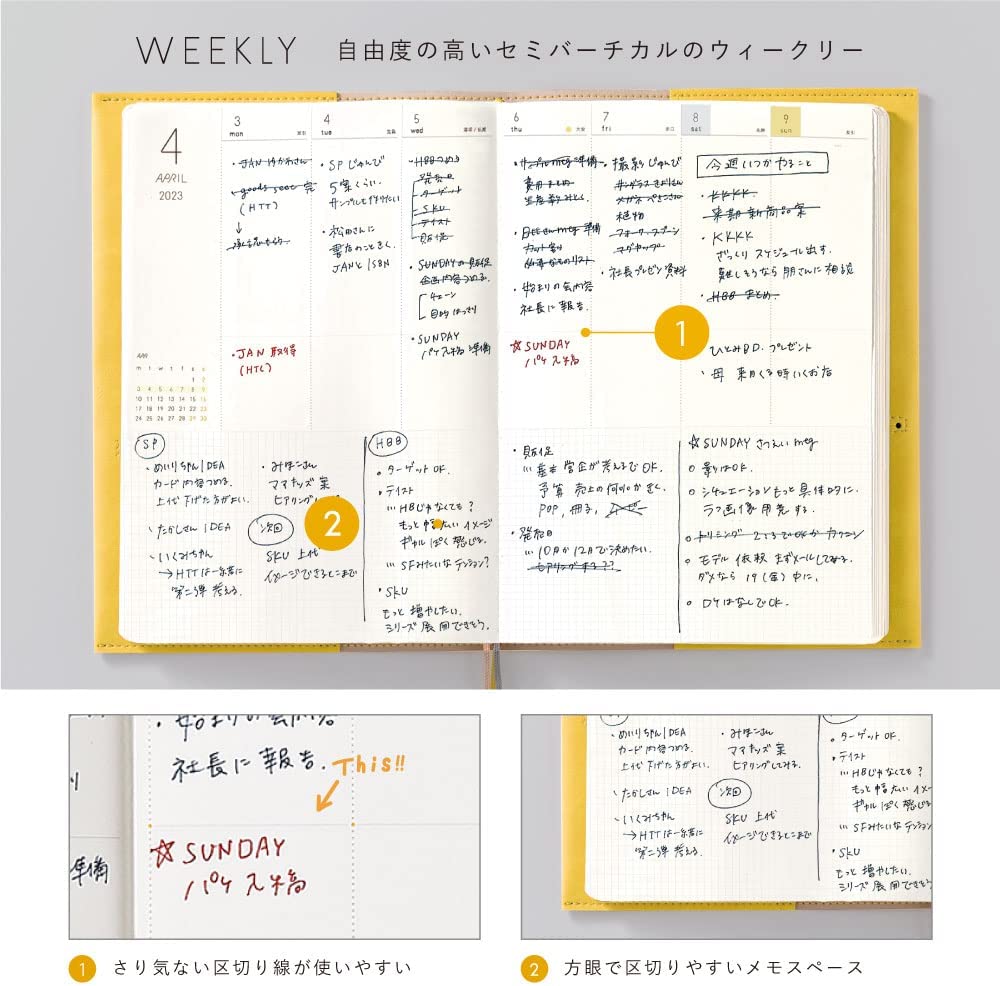 WEEKLY 自由度の高いセミバーチカルのウィークリー
4
APRIL
2023
3
mon
友引
・JAN ゆかわさん
(HTT)
↓
・JAN 取得
(HTC)
4
tue
先負
・SP じゅんび
5案くらい.
サンプルも作りたい
・松田さんに
書店のこときく.
JANとISBN
5
wed
・HBBつめる
発売日
ターゲット
SKU
テイスト
販促
・SUNDAYの販促
企画内容つめる.
チェーン
目的はっきり
・SUNDAY
パケ入稿準備
6
thu
大安
・サンプルmtg 準備
費用まとめ
・始まりの会内容
社長に報告.
☆SUNDAY
パケ入稿
7
fri
赤口
・撮影じゅんび
植物
フォーク、スプーン
マグカップ
・社長プレゼン資料
8
sat
先勝
9
sun
友引
今週いつかやること
・KKKK
来期新商品案
・KKKK
ざっくりスケジュール出す.
難しそうなら朋さんに相談
・HBBまとめ.
ひとみBD. プレゼント
・母 来月くる時いくお店
1
APR
m t w t f s s
1 2
3 4 5 6 7 8 9
10 11 12 13 14 15 16
17 18 19 20 21 22 23
24 25 26 27 28 29 30
SP
・めいりちゃんIDEA
カード内容つめる.
上代下げた方がよい.
・たかしさんiDEA
・いくみちゃん
→HTTは一年に
第二弾考える.
・みほこさん
ママキッズ案
ヒアリング
次回
SKU 上代
イメージできるとこまで
2
HBB
・ターゲットOK.
・テイスト
…HBじゃなくても?
もっと幅広いイメージ
ギャルぽく感じる.
…SFみたいなテンション?
・SKU
もっと増やしたい.
シリーズ展開できそう.
・販促
…基本営企が考えるでOK.
予算 売上の何%かきく.
POP, 冊子,
・発売日
…10月か12月で決めたい.
☆SUNDAYさつえいmtg
○ 香りはOK.
○ シチュエーションもっと具体的に.
ラフ画像用意する.
○ モデル依頼まずメールしてみる.
ダメなら19(金)中に.
○ ロケはなしでOK.
・始まりの会内容
社長に報告.
This!!
☆SUNDAY
パケ入稿
準備
・めいりちゃんIDEA
カード内容つめる.
上代下げた方がよい.
・たかしさんiDEA
・いくみちゃん
→HTTは一年に
第二弾考える.
・みほこさん
ママキッズ案
ヒアリングしてみる.
次回
SKU 上代
イメージできるとこまで
・ターゲットOK.
・テイスト
…HBじゃなくても?
もっと幅広いイメー
ギャルぽく感じる
…SFみたいなテンション
・SKU
もっと増やしたい.
シリーズ展開できそう
1 さり気ない区切り線が使いやすい
2 方眼で区切りやすいメモスペース